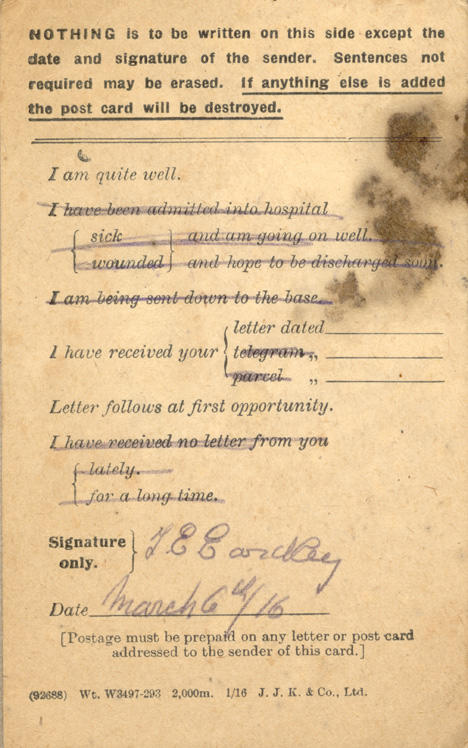 NOTHING is to be written on this side except the
date and signature of the sender. Sentences not
required may be erased. If anything else is added
the post card will be destroyed.
I am quite well.
I have been admitted into hospital
{ sick } and am going on well.
{ wounded } and hope to be discharged soon.
I am being sent down to the base.
I have received your { letter dated
telegram „
parcel „
Letter follows at first opportunity.
I have received no letter from you
{ lately.
for a long time.
Signature only. } T E Eardley
Date March 6th/16
[Postage must be prepaid on any letter or post card
addressed to the sender of this card.]
(92688) Wt. W3497-293 2,000m. 1/16 J. J. K. & Co., Ltd.